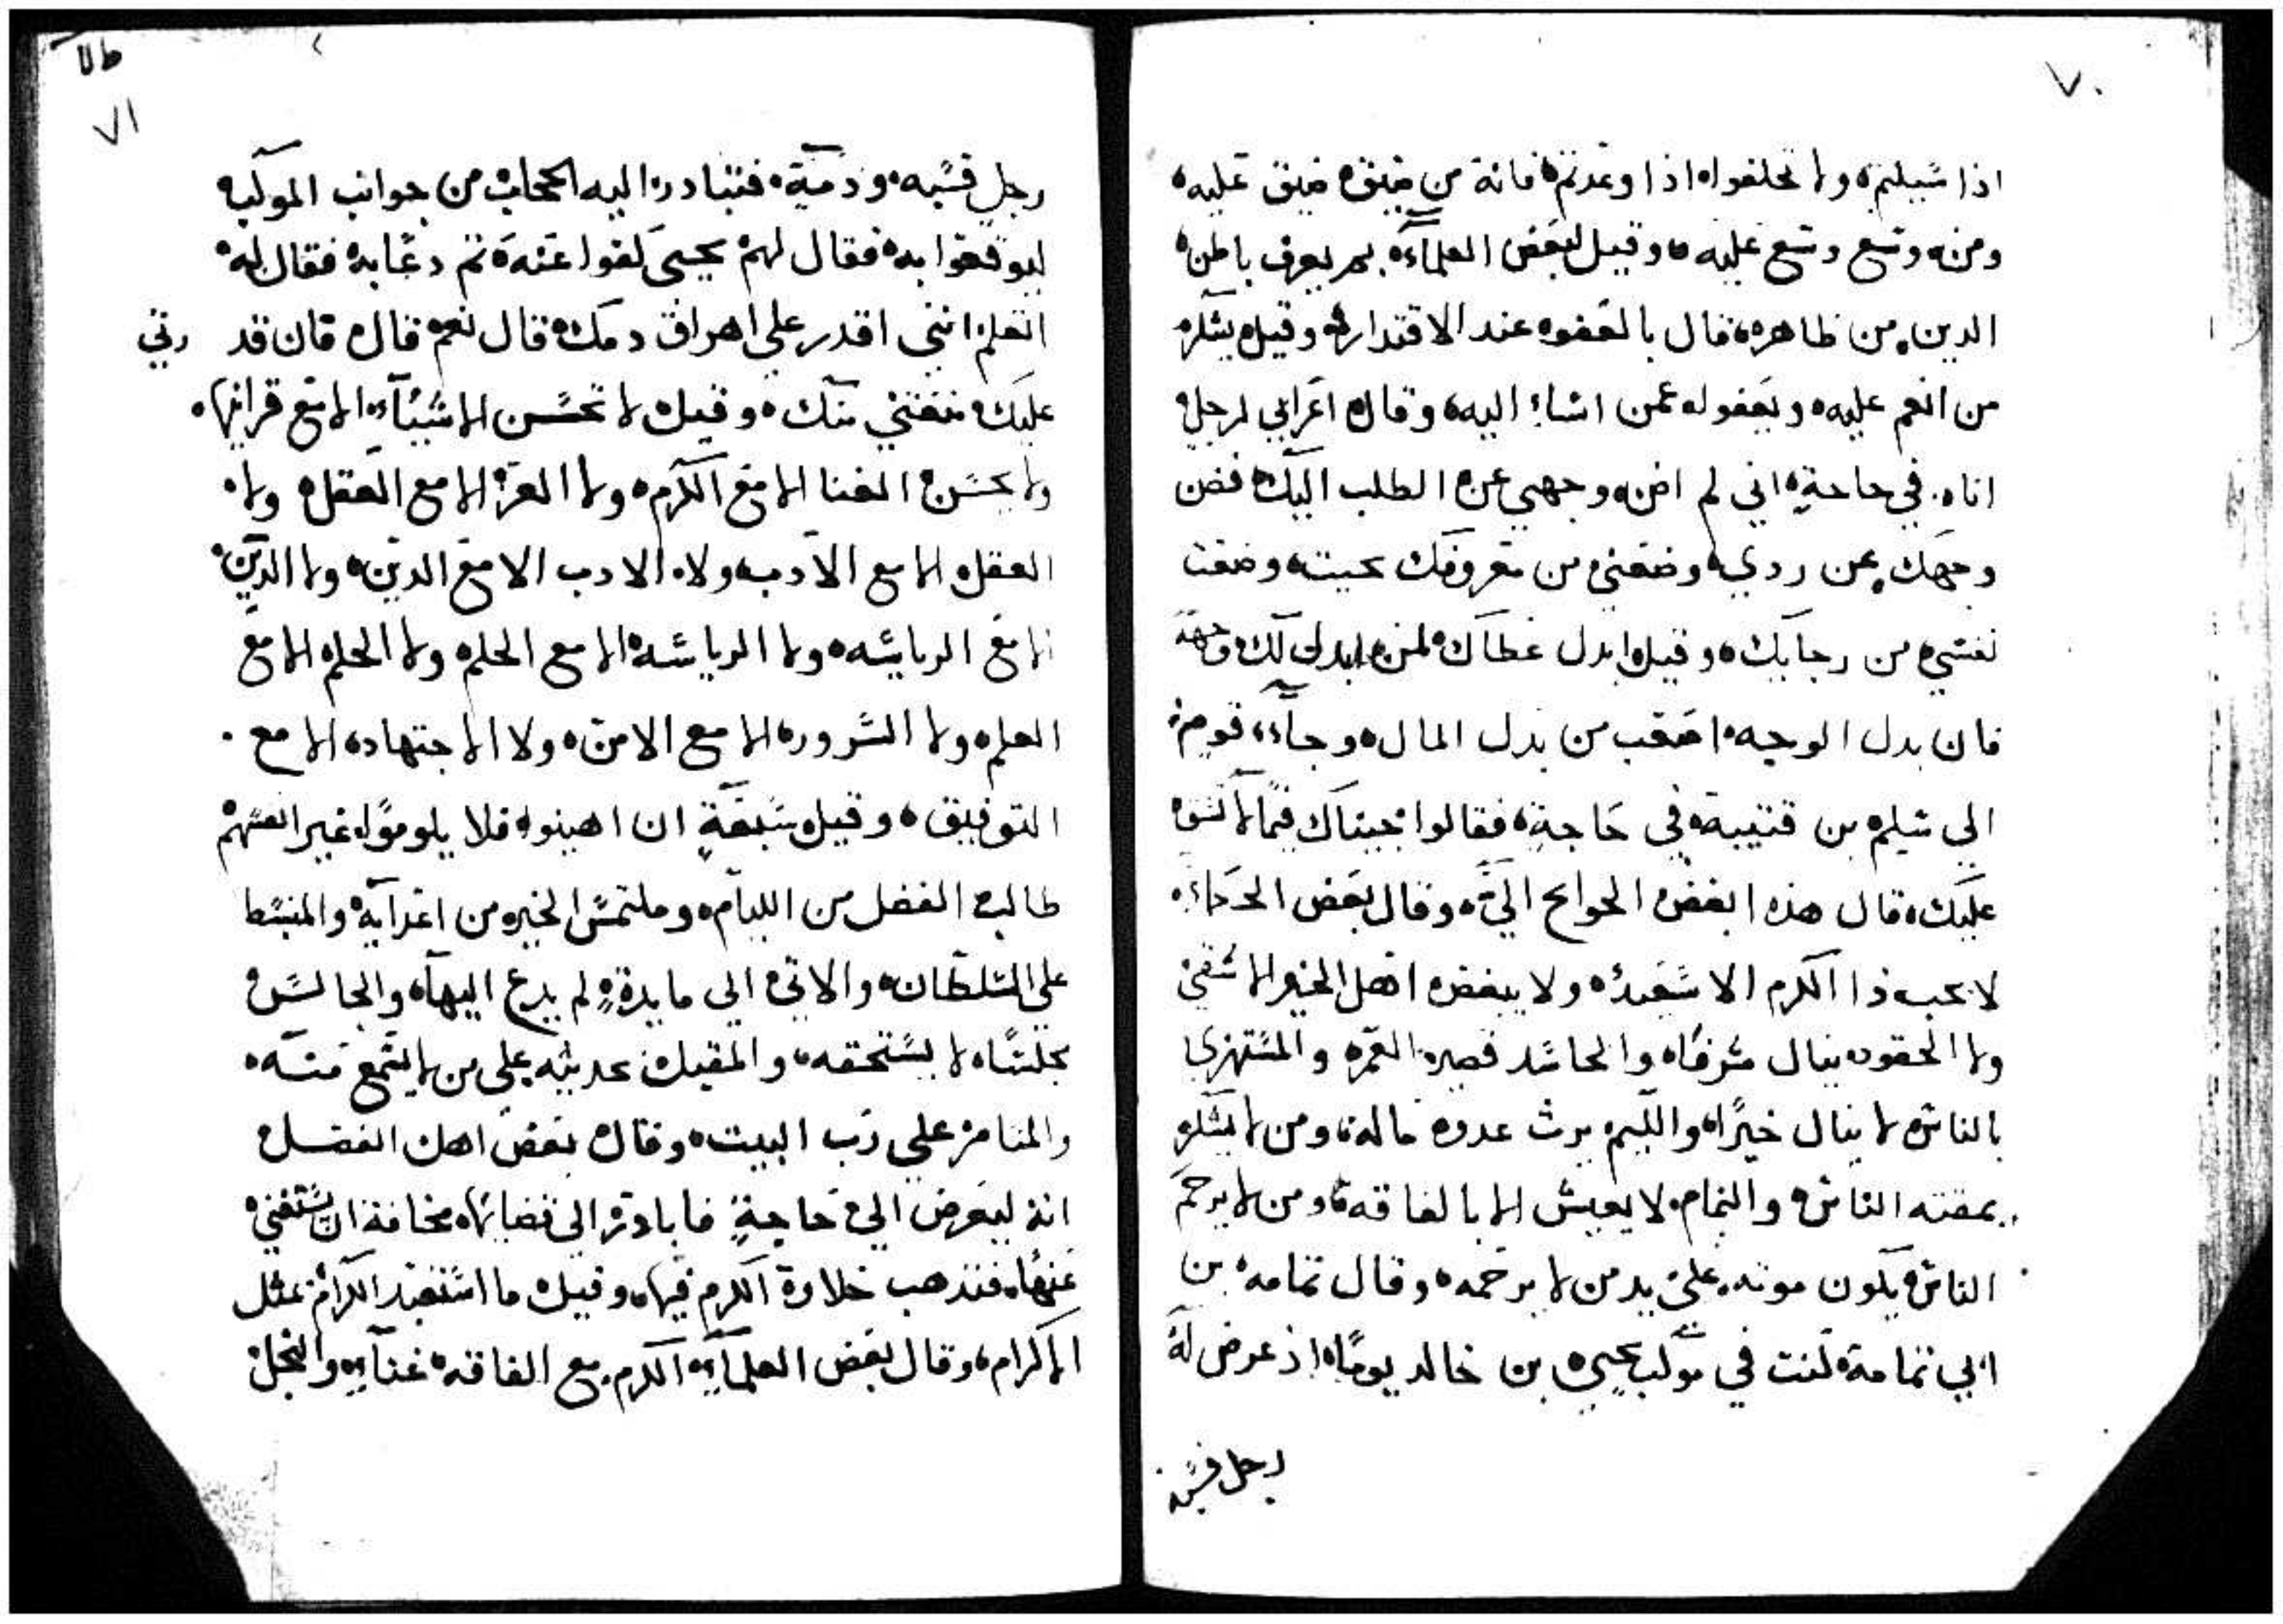 ٧٠
اذا سيلتم ولا تخلفوا اذا وعدتم فانه من ضيق ضيق عليه
ومن وسع وسع عليه وقيل لبعض العلماء بم يعرف باطن
الدين من ظاهره قال بالعفو عند الاقتدار وقيل يشكر
من انعم عليه ويعفو له عمن اساء اليه وقال اعرابي لرجل
اتاه في حاجة اني لم اصن وجهي عن الطلب اليك فصن
وجهك عن ردي وضعني من معروفك بحيث وضعت
نفسي من رجايك وقيل ابدل عطاك لمن ابدل لك وجهه
فان بدل الوجه اصعب من بدل المال وجاء قوم
الى سلم بن قتيبة في حاجة فقالوا جيناك فيما لا
عليك قال هذه ابغض الحوايج الي وقال بعض الحكماء
لا يحب ذا الكرم الا سعيد ولا يبغض اهل الخير الا شقي
ولا الحقود ينال شرفا والحاسد قصير العمر والمستهزي
بالناس لا ينال خيرا واللييم يرث عدوه ماله ومن لا يشكر
يمقته الناس والنمام لا يعيش الا بالفاقه ومن لا يرحم
الناس يكون موته على يد من لا يرحمه وقال ثمامه بن
ابي ثمامة كنت في موكب يحيى بن خالد يوما اذ عرض له
رجل فسبه
طالا
٧١
رجل فسبه وذمه فتبادر اليه الحجاب من جوانب الموكب
ليوقعوا به فقال لهم يحيى كفوا عنه ثم دعا به فقال له
اتعلم انني اقدر على اهراق دمك قال نعم قال فان قدرتي
عليك منعتني منك وقيل لا تحسن الاشياء الا مع قراينها
ولا يحسن الغنا الا مع الكرم ولا العز الا مع العقل ولا
العقل الا مع الادب ولا الادب الا مع الدين ولا الدين
الا مع الرياسه ولا الرياسه الا مع الحلم ولا الحلم الا مع
العلم ولا السرور الا مع الامن ولا الاجتهاد الا مع
التوفيق وقيل سبعة ان اهينوا فلا يلوموا غير انفسهم
طالب الفضل من الليام وملتمس الخير من اعدايه والمنبسط
على السلطان والاتي الى مايدة لم يدع اليها والجالس
مجلسا لا يستحقه والمقبل بحديثه على من لا يسمع منه
والمتامر على رب البيت وقال بعض اهل الفضل
انه ليعرض الي حاجة فابادر الى قضايها مخافة ان يستغني
عنها فتذهب حلاوة الكرم فيها وقيل ما استعبد الكرام بمثل
الاكرام وقال بعض العلماء الكرم مع الفاقه غناء والبخل